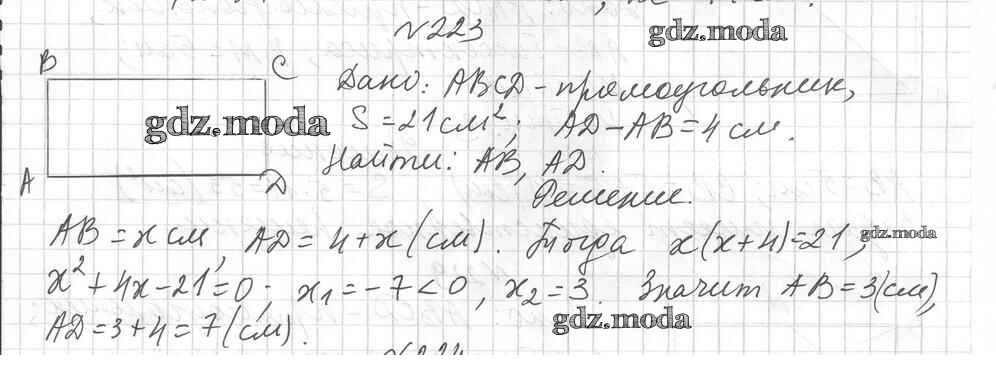 №223
gdz.moda
B C
Дано: ABCD - прямоугольник,
gdz.moda
S = 21 см²; AD - AB = 4 см.
Найти: AB, AD.
A D
Решение.
AB = x см, AD = 4 + x (см). Тогда x(x+4)=21,
gdz.moda
x² + 4x - 21 = 0; x₁ = -7 < 0, x₂ = 3. Значит AB = 3 (см),
AD = 3 + 4 = 7 (см).
gdz.moda